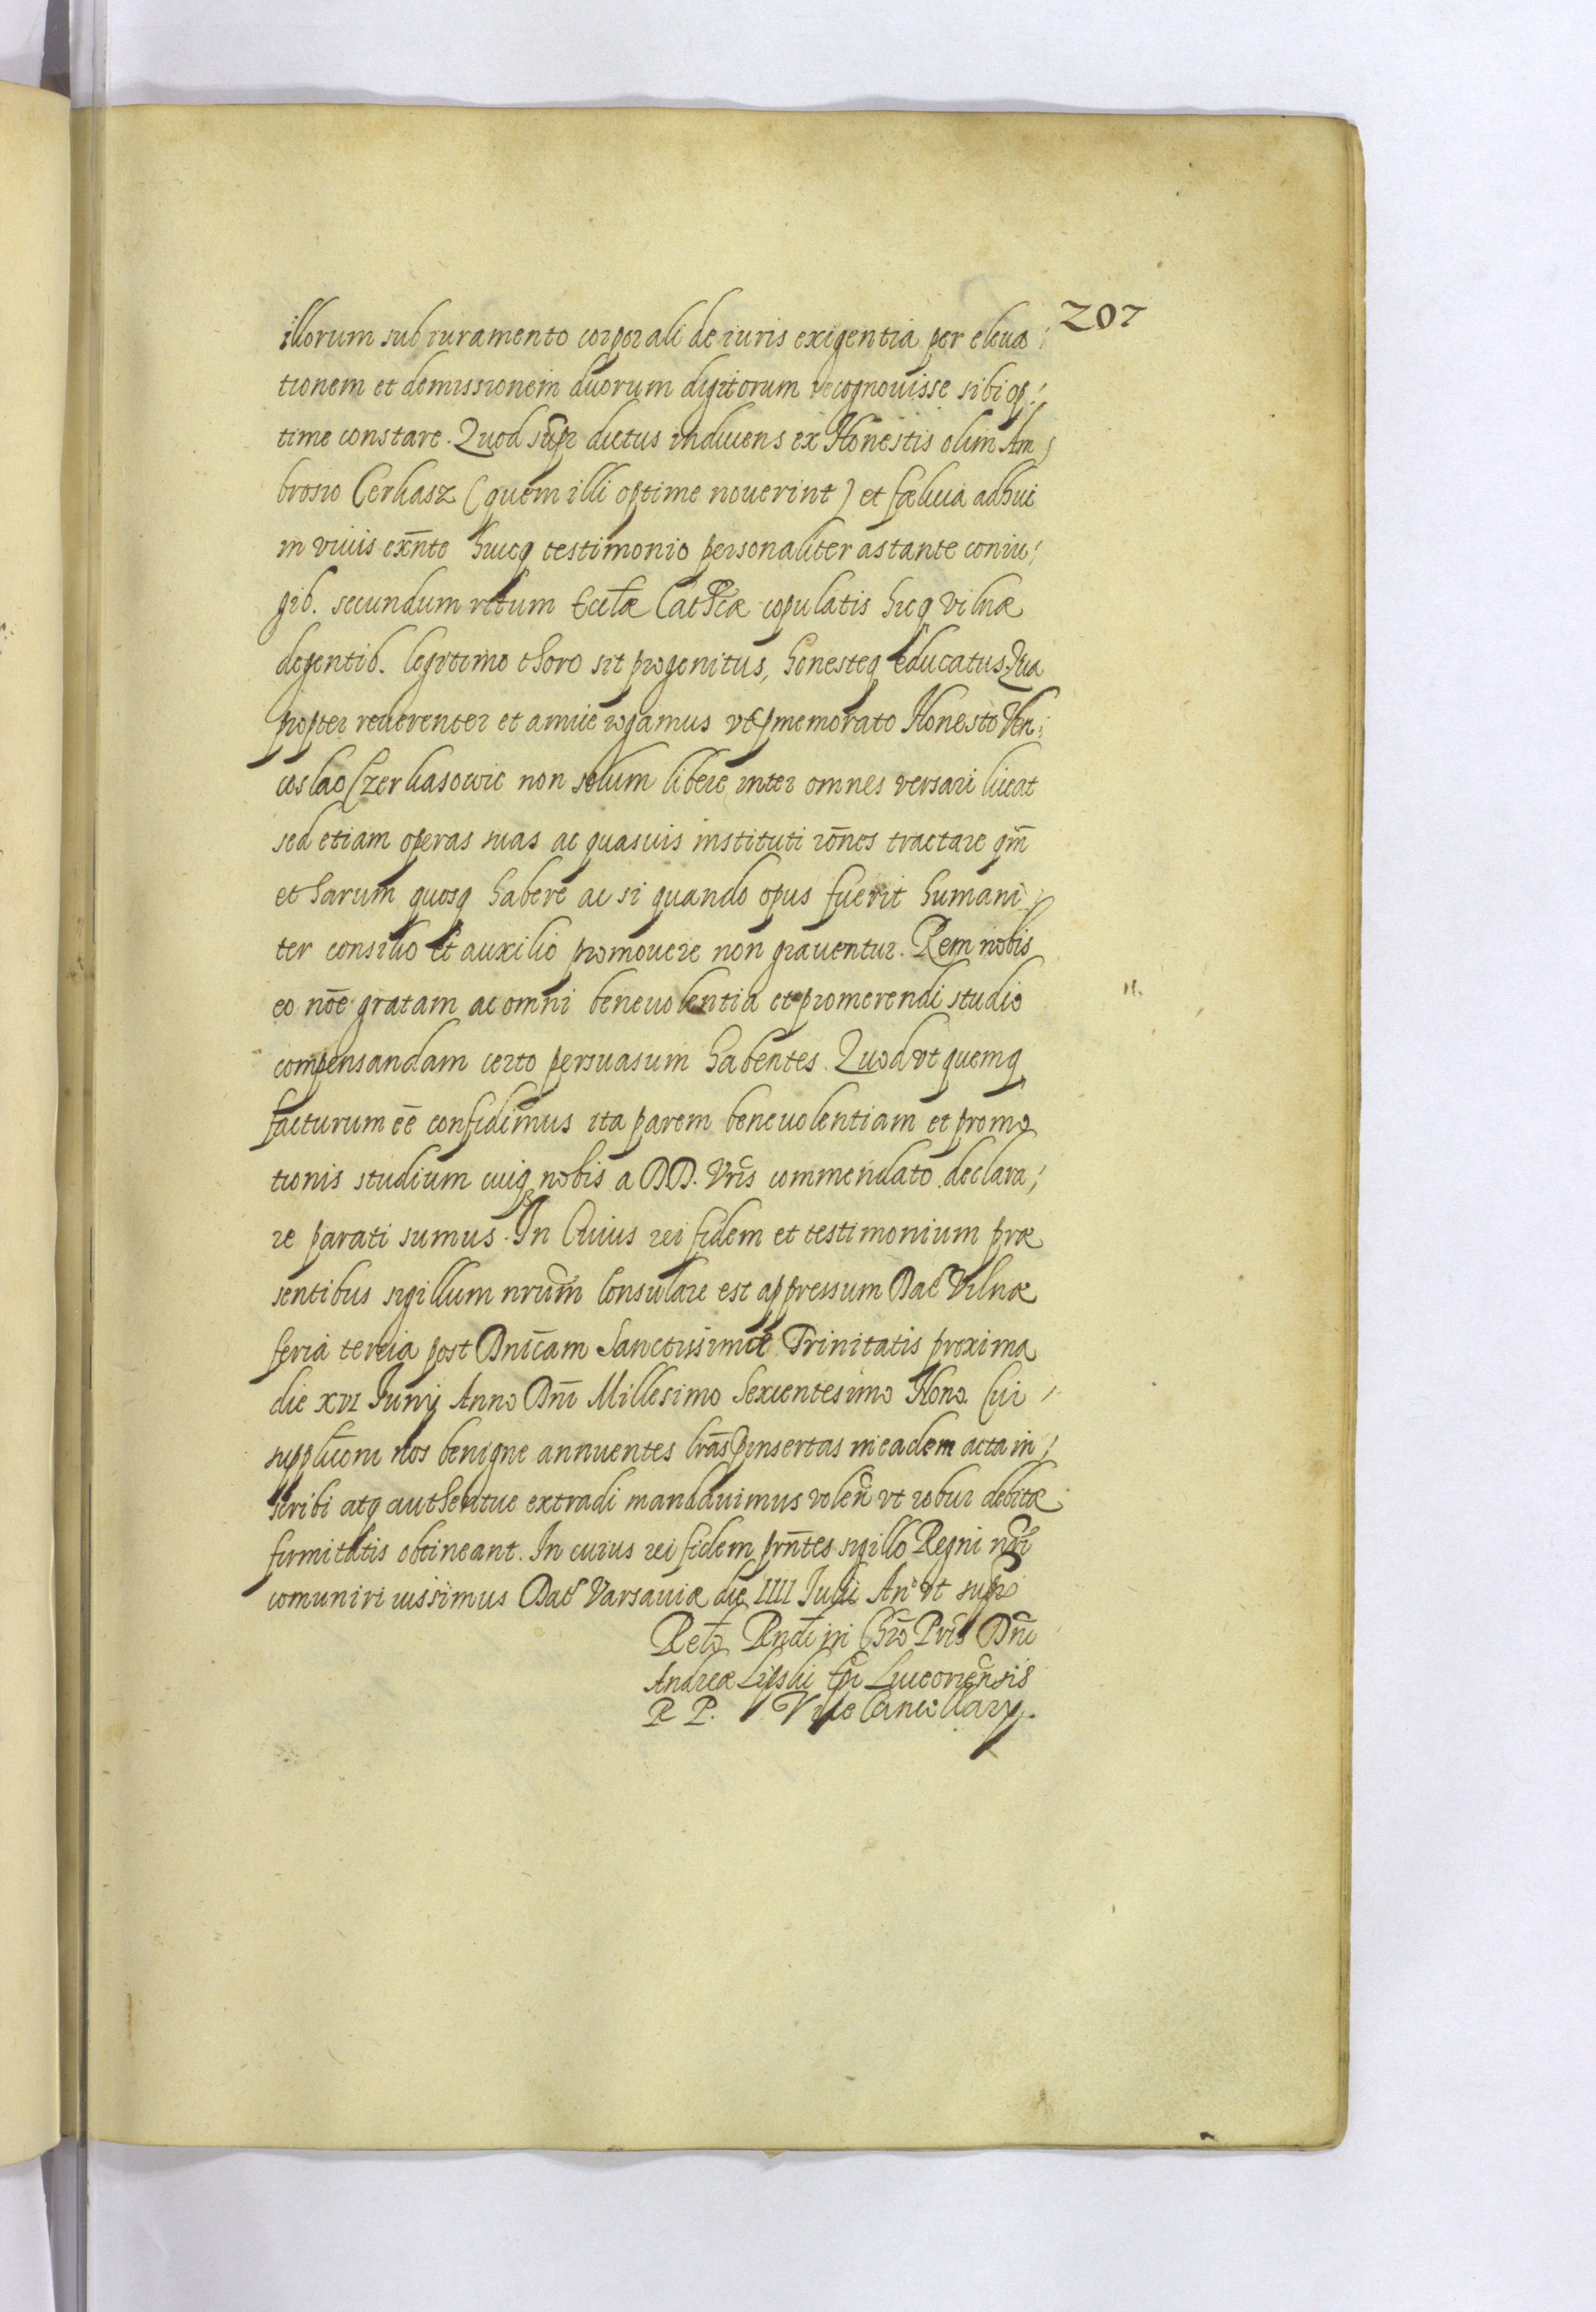 207
illorum sub iuramento corporali de iuris exigentia per eleua
tionem et demissionem duorum digitorum recognouisse sibi op:
time constare. Quod supr dictus inducens ex Honestis olim Am
brosio Cerkasz (quem illi optime nouerint) et fælicia adhuc
in viuis exn̄te huicq testimonio personaliter astante coniu:
gib. secundum ritum Eccl̄æ Cathcæ copulatis hicq Vilnæ
degentib. legitimo thoro sit progenitus, honesteq educatus. Qua
propter reuerenter et amice rogamus vt pmemorato Honesto
coslao Czerkasowic non solum libere inter omnes versari liceat
sed etiam operas suas ac quasuis instituti rōnes tractare qm̄
et harum quosq habere ac si quando opus fuerit humani
ter consilio et auxilio promouere non grauentur. Rem nobis
eo nōe gratam ac omni beneuolentia et promerendi studio
compensandam certo persuasum habentes. Quod vt quemq
facturum ēē confidimus ita parem beneuolentiam et promo
tionis studium cuiq nobis a DD. Vrīs commendato declara:
re parati sumus. In Cuius rei fidem et testimonium præ
sentibus sigillum nrūm Consulare est appressum Dat Vilnæ
feria tercia post Dnīcam Sanctissimæ Trinitatis proxima
die XVI Junij Anno Dnī Millesimo Sexcentesimo Nono. Cui
supplicōni nos benigne annuentes lrās pinsertas in eadem acta in:
scribi atq authentice extradi mandauimus volen̄ vt robur debitæ
firmitatis obtineant. In cuius rei fidem prn̄tes sigillo Regni nrī
comuniri iussimus Dat Varsauiæ die IIII Julii An° vt supr
Relō Rndī in Chrō Pris Dnī
Andreæ Lipski Epī Luceoriensis
R P. Vice Cancellarij.